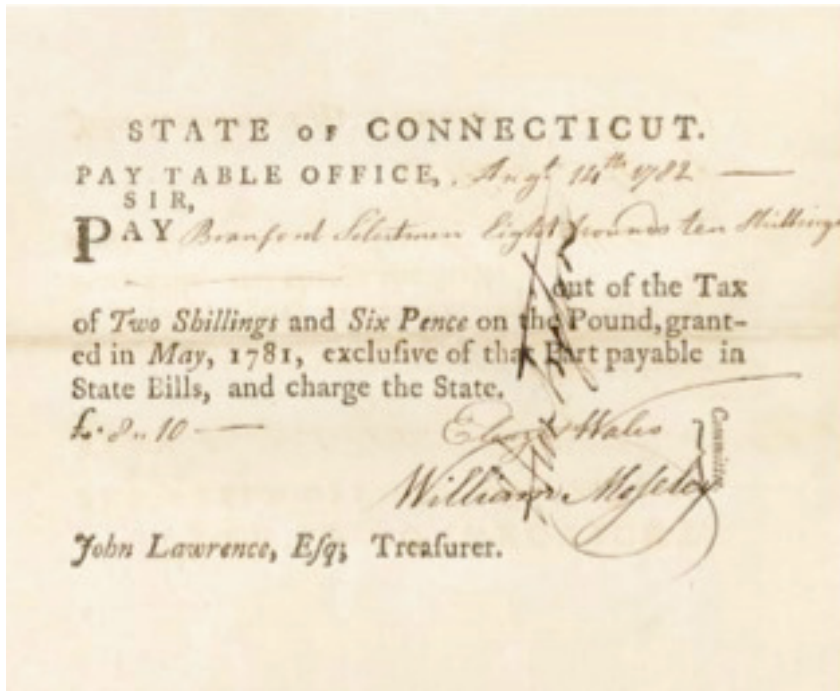 STATE OF CONNECTICUT.
PAY TABLE OFFICE, Augt 14th 1782
SIR,
PAY Branford Selectmen Eight pounds ten Shillings
out of the Tax
of Two Shillings and Six Pence on the Pound, grant-
ed in May, 1781, exclusive of that Part payable in
State Bills, and charge the State.
£. 8 " 10
Wales
William Moseley
Committee.
John Lawrence, Esq; Treasurer.